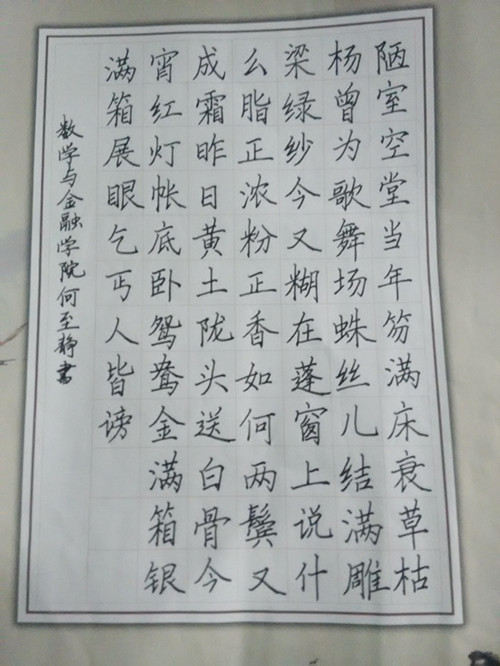 陋室空堂当年笏满床衰草枯
杨曾为歌舞场蛛丝儿结满雕
梁绿纱今又糊在蓬窗上说什
么脂正浓粉正香如何两鬓又
成霜昨日黄土陇头送白骨今
宵红灯帐底卧鸳鸯金满箱银
满箱展眼乞丐人皆谤
数学与金融学院何至静书